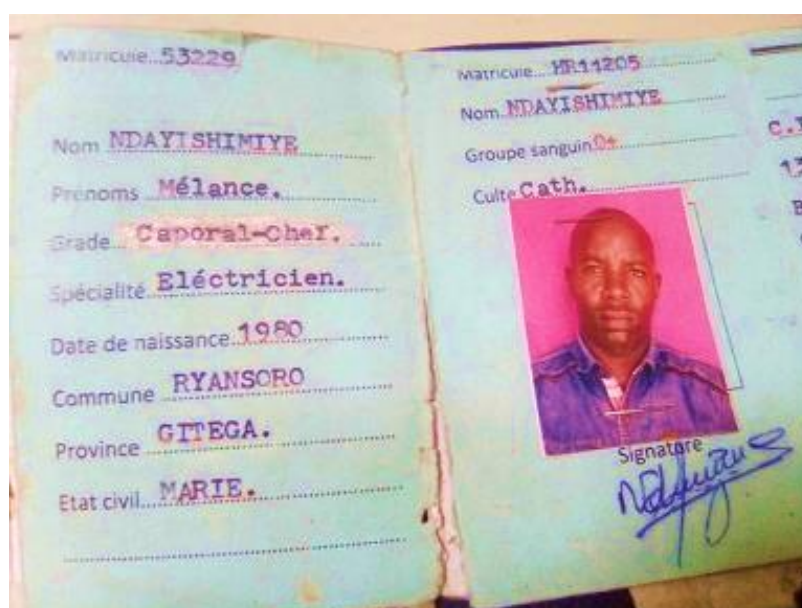 Matricule...53229
Nom NDAYISHIMIYE
Prénoms Mélance.
Grade... Caporal-Chef.
Spécialité Eléctricien.
Date de naissance.1980
Commune RYANSORO
Province GITEGA.
Etat civil...MARIE.
Matricule... HR11205
Nom NDAYISHIMIYE
Groupe sanguin O+
Culte Cath.
Signature